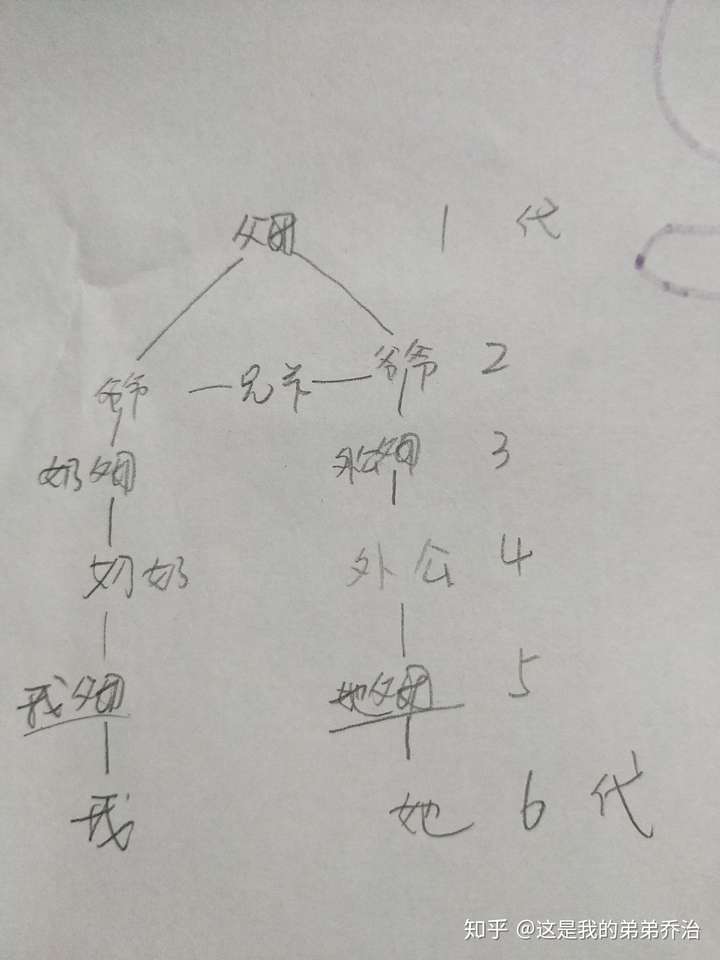 父母 1 代
爷爷 一兄弟一 爷爷 2
奶父母 外公父母 3
奶奶 外公 4
我父母 她父母 5
我 她 6 代
知乎 @这是我的弟弟乔治